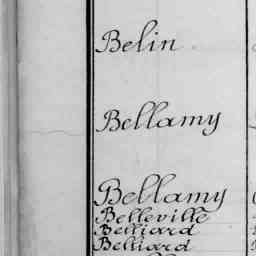 Belin
Bellamy
Bellamy
Belleville
Belliard
Belliard